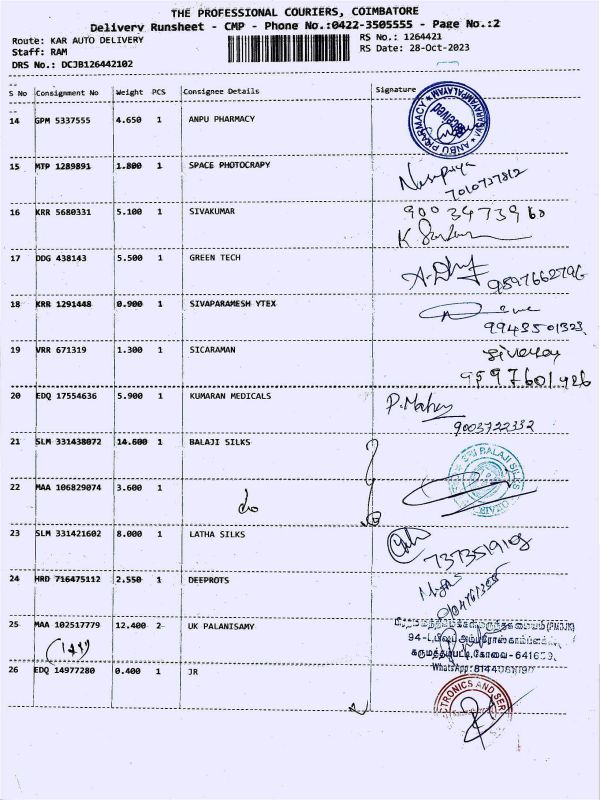 THE PROFESSIONAL COURIERS, COIMBATORE
Delivery Runsheet - CMP - Phone No.:0422-3505555 - Page No.:2
Route: KAR AUTO DELIVERY RS No.: 1264421
Staff: RAM RS Date: 28-Oct-2023
DRS No.: DCJB126442102
S No Consignment No Weight PCS Consignee Details Signature
14 GPM 5337555 4.650 1 ANPU PHARMACY
ANBU PHARMACY
Received
15 MTP 1289891 1.800 1 SPACE PHOTOCRAPY
7010737812
16 KRR 5680331 5.100 1 SIVAKUMAR
9003473960
17 DDG 438143 5.500 1 GREEN TECH
9597662796
18 KRR 1291448 0.900 1 SIVAPARAMESH YTEX
9943501323
19 VRR 671319 1.300 1 SICARAMAN
9597601926
20 EDQ 17554636 5.900 1 KUMARAN MEDICALS
P.Mohan
9003722332
21 SLM 331438072 14.600 1 BALAJI SILKS
SRI BALAJI SILKS
22 MAA 106829074 3.600 1
do
23 SLM 331421602 8.000 1 LATHA SILKS
7373519108
24 HRD 716475112 2.550 1 DEEPROTS
25 MAA 102517779 12.400 2 UK PALANISAMY
(PMBJK)
கருமத்தம்பட்டி, கோவை - 641659,
WhatsApp:
26 EDQ 14977280 0.400 1 JR
CTRONICS AND SER